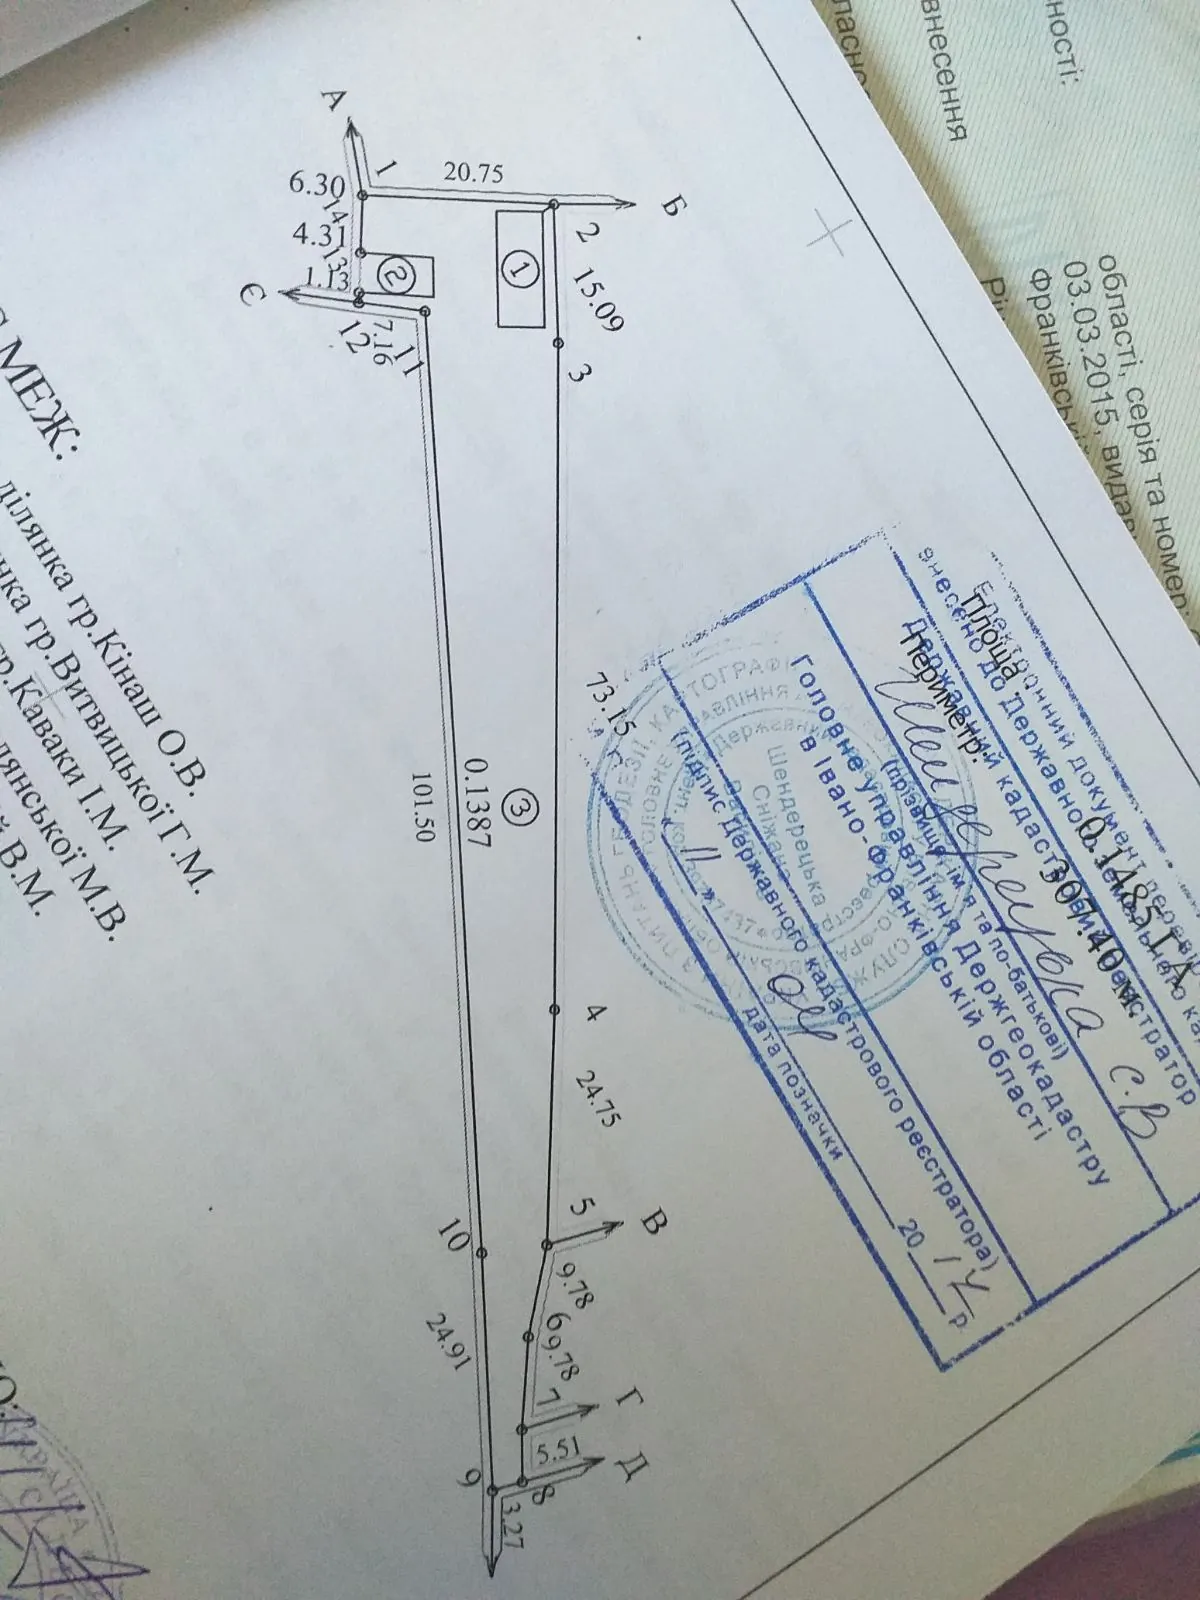 ності:
внесення
області, серія та номер:
03.03.2015, видав
А
Б
1
20.75
6.30
14
4.31
13
1.13
Є
12
7.16
11
2
15.09
3
1
2
3
73.15
0.1387
101.50
4
24.75
5
В
9.78
6
9.78
7
Г
5.51
8
Д
3.27
9
24.91
10
Площа
0.1485 га
Периметр:
307.40 м.
Електронний документ
внесено до Державного земельного
Державний кадастровий реєстратор
(прізвище, ім'я та по-батькові)
С.В
Головне управління Держгеокадастру
в Івано-Франківській області
(підпис Державного кадастрового реєстратора)
"11"
20 17 р.
дата позначки
Шендерецька
Сніжана
МЕЖ:
ділянка гр.Кінаш О.В.
гр.Витвицької Г.М.
гр.Каваки І.М.
В.М.